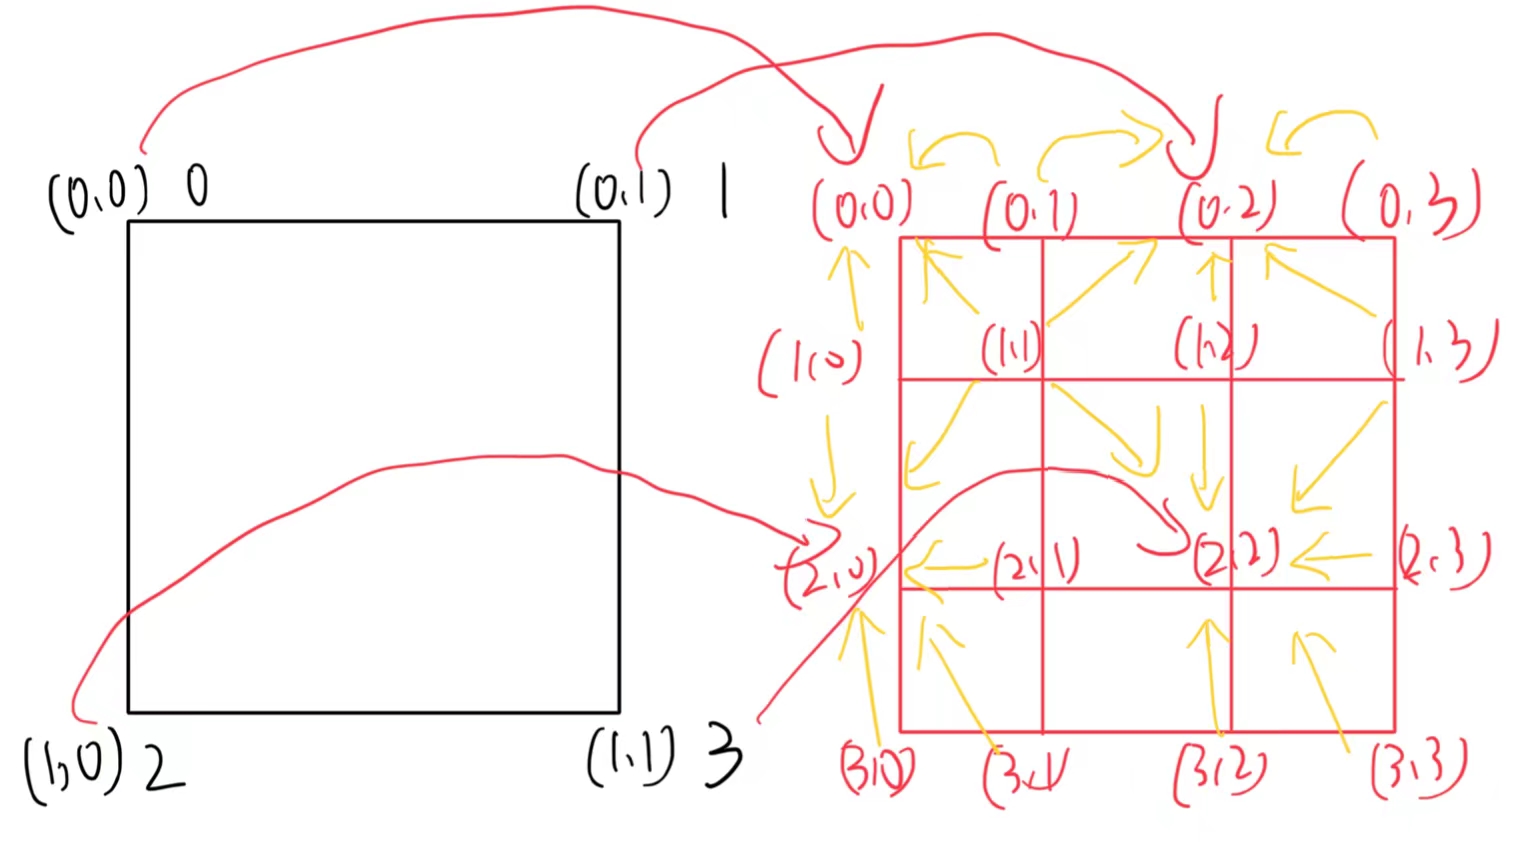 (0,0) 0
(0,1) 1
(1,0) 2
(1,1) 3
(0,0) (0,1) (0,2) (0,3)
(1,0) (1,1) (1,2) (1,3)
(2,0) (2,1) (2,2) (2,3)
(3,0) (3,1) (3,2) (3,3)